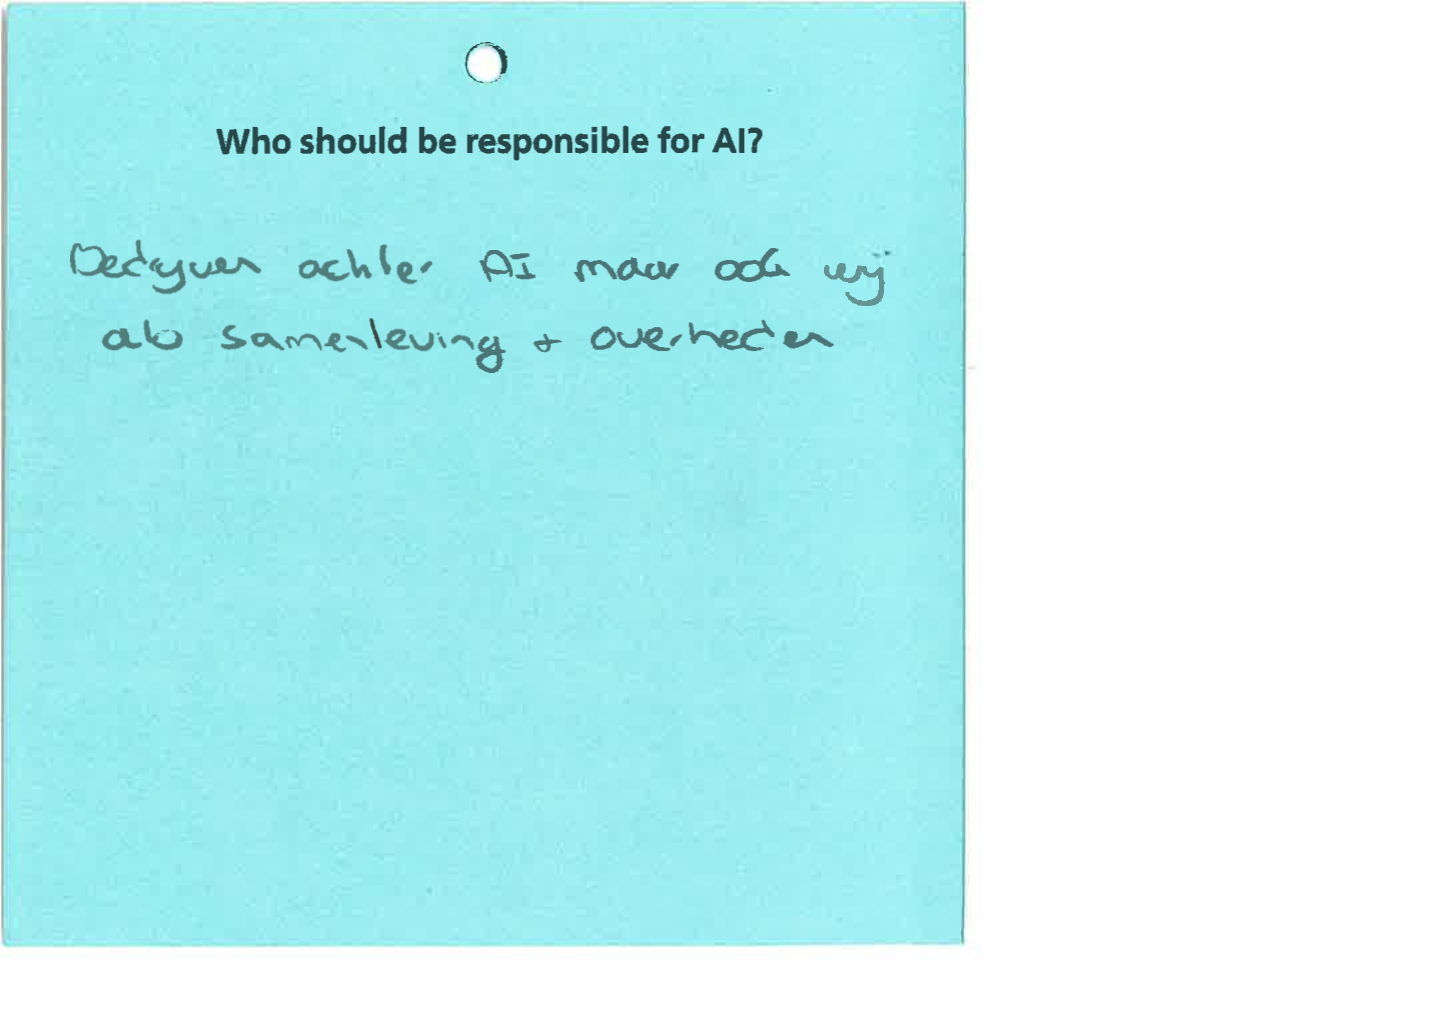 Who should be responsible for AI?
Bedrijven achter AI maar ook wij
als samenleving + overheden